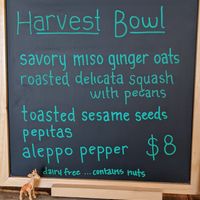 Harvest Bowl
savory miso ginger oats
roasted delicata squash
with pecans
toasted sesame seeds
pepitas
aleppo pepper $8
dairy free ... contains nuts